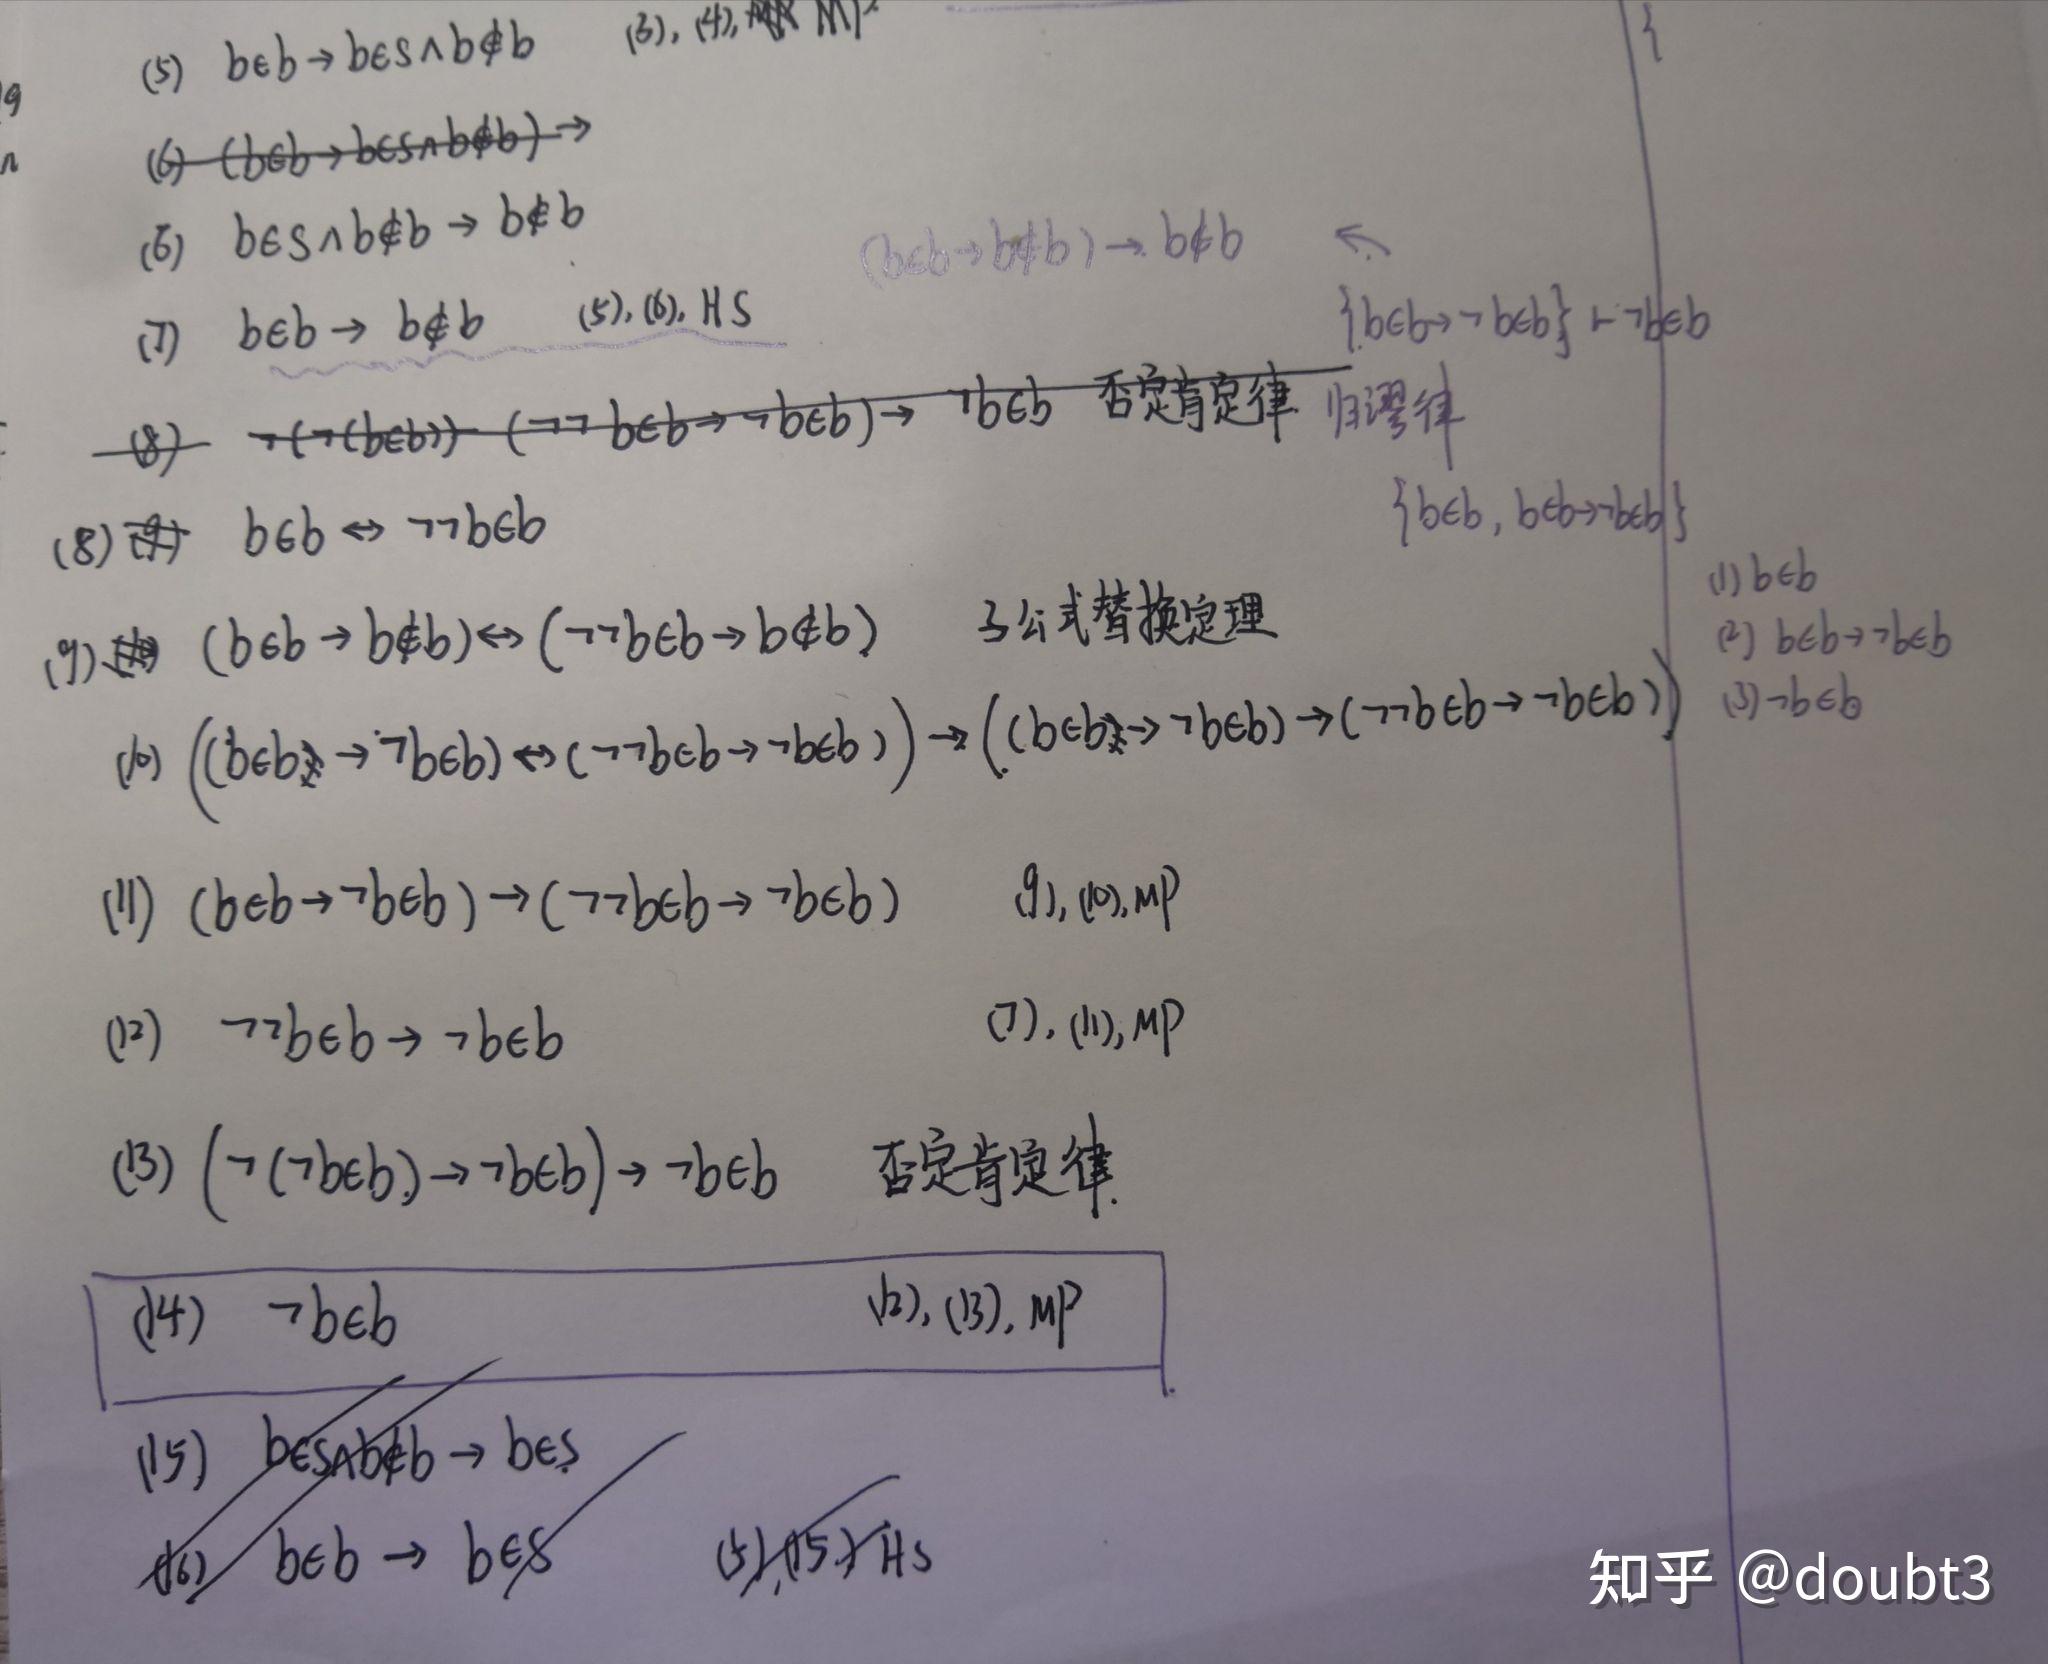 (5) b∈b → b∈S∧b∉b (3), (4), MP
(6) (b∈b → b∈S∧b∉b) →
(6) b∈S∧b∉b → b∉b
(b∈b → b∉b) → b∉b
(7) b∈b → b∉b (5), (6), HS
{b∈b → ¬b∈b} ⊢ ¬b∈b
(8) ¬(¬(b∈b)) (¬¬b∈b → ¬b∈b) → ¬b∈b 否定肯定律
归谬律
{b∈b, b∈b → ¬b∈b}
(1) b∈b
(2) b∈b → ¬b∈b
(3) ¬b∈b
(8) b∈b ↔ ¬¬b∈b
(9) (b∈b → b∉b) ↔ (¬¬b∈b → b∉b) 子公式替换定理
(10) ((b∈b → ¬b∈b) ↔ (¬¬b∈b → ¬b∈b)) → ((b∈b → ¬b∈b) → (¬¬b∈b → ¬b∈b))
(11) (b∈b → ¬b∈b) → (¬¬b∈b → ¬b∈b) (9), (10), MP
(12) ¬¬b∈b → ¬b∈b (7), (11), MP
(13) (¬(¬b∈b) → ¬b∈b) → ¬b∈b 否定肯定律
(14) ¬b∈b (12), (13), MP
(15) b∈S∧b∉b → b∈S
(16) b∈b → b∈S (5), (15) HS
知乎 @doubt3